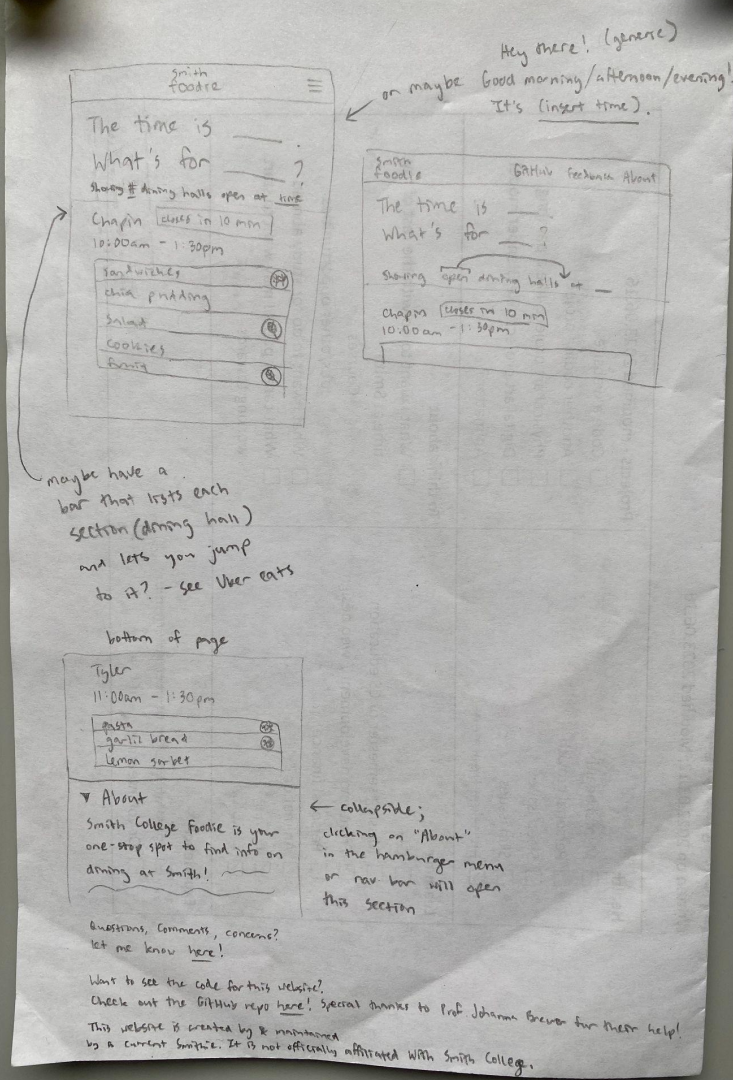 Hey there! (generic)
or maybe Good morning/afternoon/evening!
It's (insert time).
Smith
foodie
The time is ____.
What's for ____?
showing # dining halls open at time
Chapin closes in 10 min
10:00am - 1:30pm
sandwiches
chia pudding
salad
cookies
Smith
foodie
GitHub Feedback About
The time is ___
What's for ___?
showing open dining halls at __
Chapin closes in 10 min
10:00am - 1:30pm
maybe have a
bar that lists each
section (dining hall)
and lets you jump
to it? - see Uber eats
bottom of page
Tyler
11:00am - 1:30pm
pasta
garlic bread
lemon sorbet
▼ About
Smith College Foodie is your
one-stop spot to find info on
dining at Smith!
← collapsible;
clicking on "About"
in the hamburger menu
or nav bar will open
this section
Questions, comments, concerns?
Let me know here!
Want to see the code for this website?
Check out the GitHub repo here! Special thanks to Prof Johanna Brewer for their help!
This website is created by & maintained
by a current Smithie. It is not officially affiliated with Smith College.